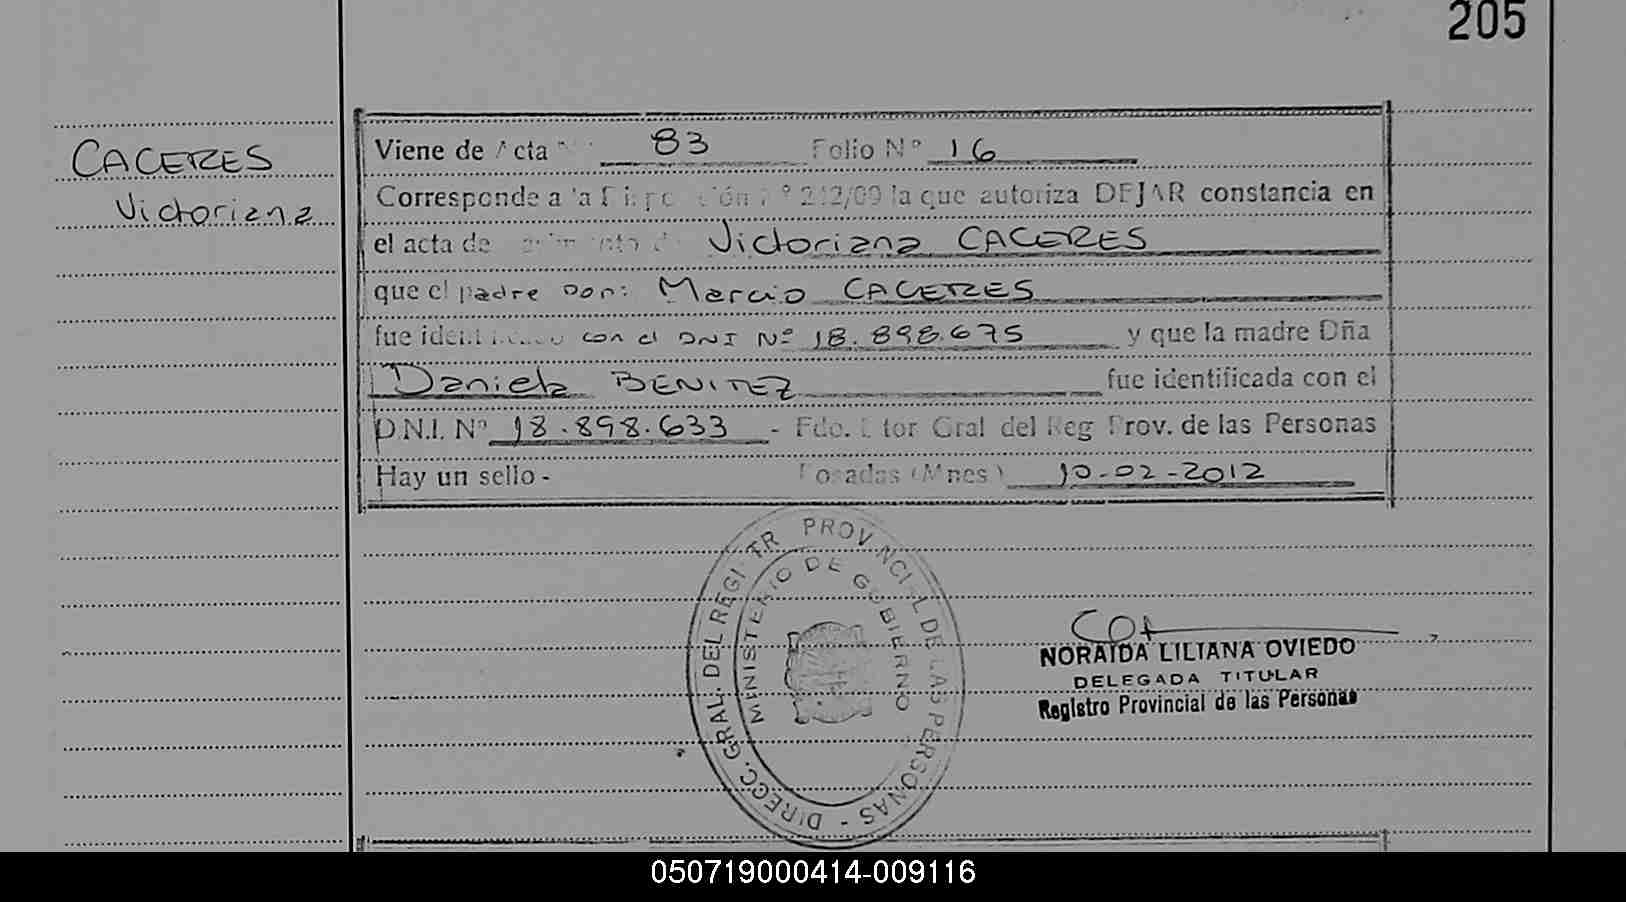 205
CACERES
Victoriana
Viene de Acta 83 Folio Nº 16
Corresponde a la Disposición Nº 212/09 la que autoriza DEJAR constancia en
el acta de nacimiento de Victoriana CACERES
que el padre Don: Marcio CACERES
fue identificado con el DNI Nº 18.898.675 y que la madre Dña
Daniela BENITEZ fue identificada con el
D.N.I. Nº 18.898.633 - Fdo. Dtor Gral del Reg Prov. de las Personas
Hay un sello - Posadas (Mnes) 10-02-2012
DIRECC. GRAL. DEL REGISTR PROVINCIAL DE LAS PERSONAS -
MINISTERIO DE GOBIERNO
NORAIDA LILIANA OVIEDO
DELEGADA TITULAR
Registro Provincial de las Personas
050719000414-009116